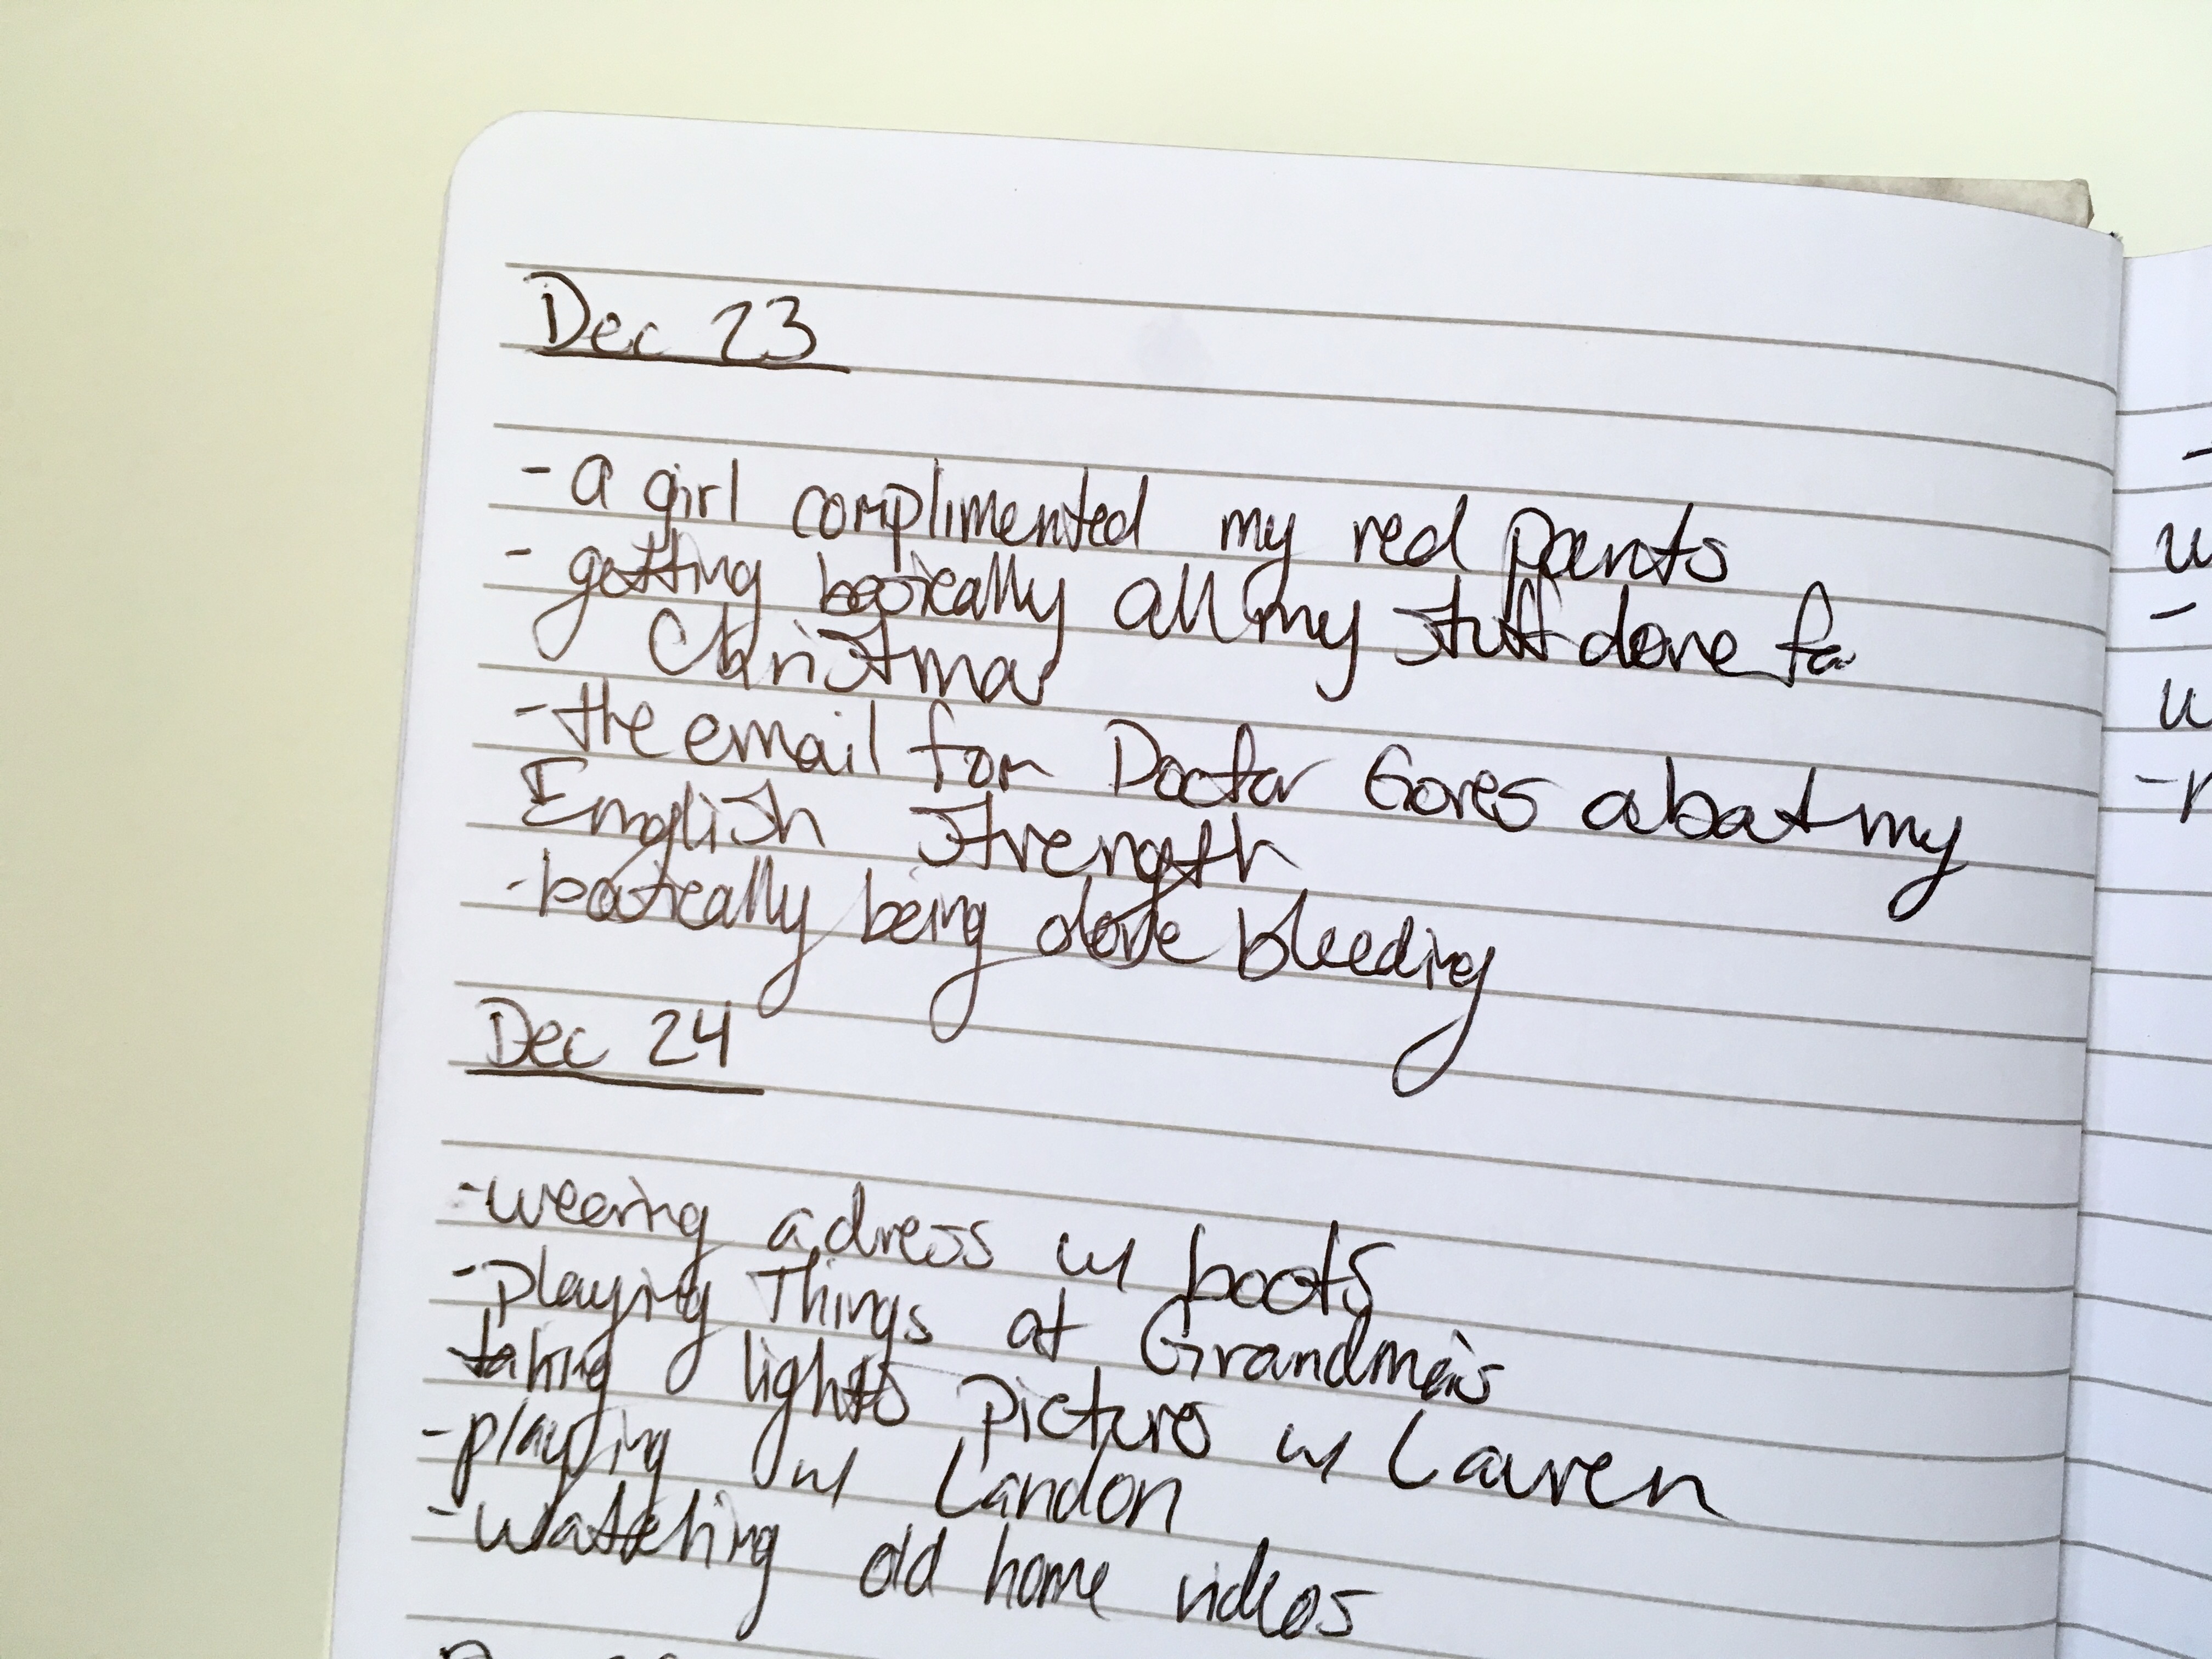 Dec 23
- a girl complimented my red pants
- getting basically all my stuff done for
Christmas
- the email from Doctor Gores about my
English strength
- basically being done bleeding
Dec 24
- wearing a dress w/ boots
- playing Things at Grandma's
- taking lights picture w/ Lauren
- playing w/ Landon
- watching old home videos